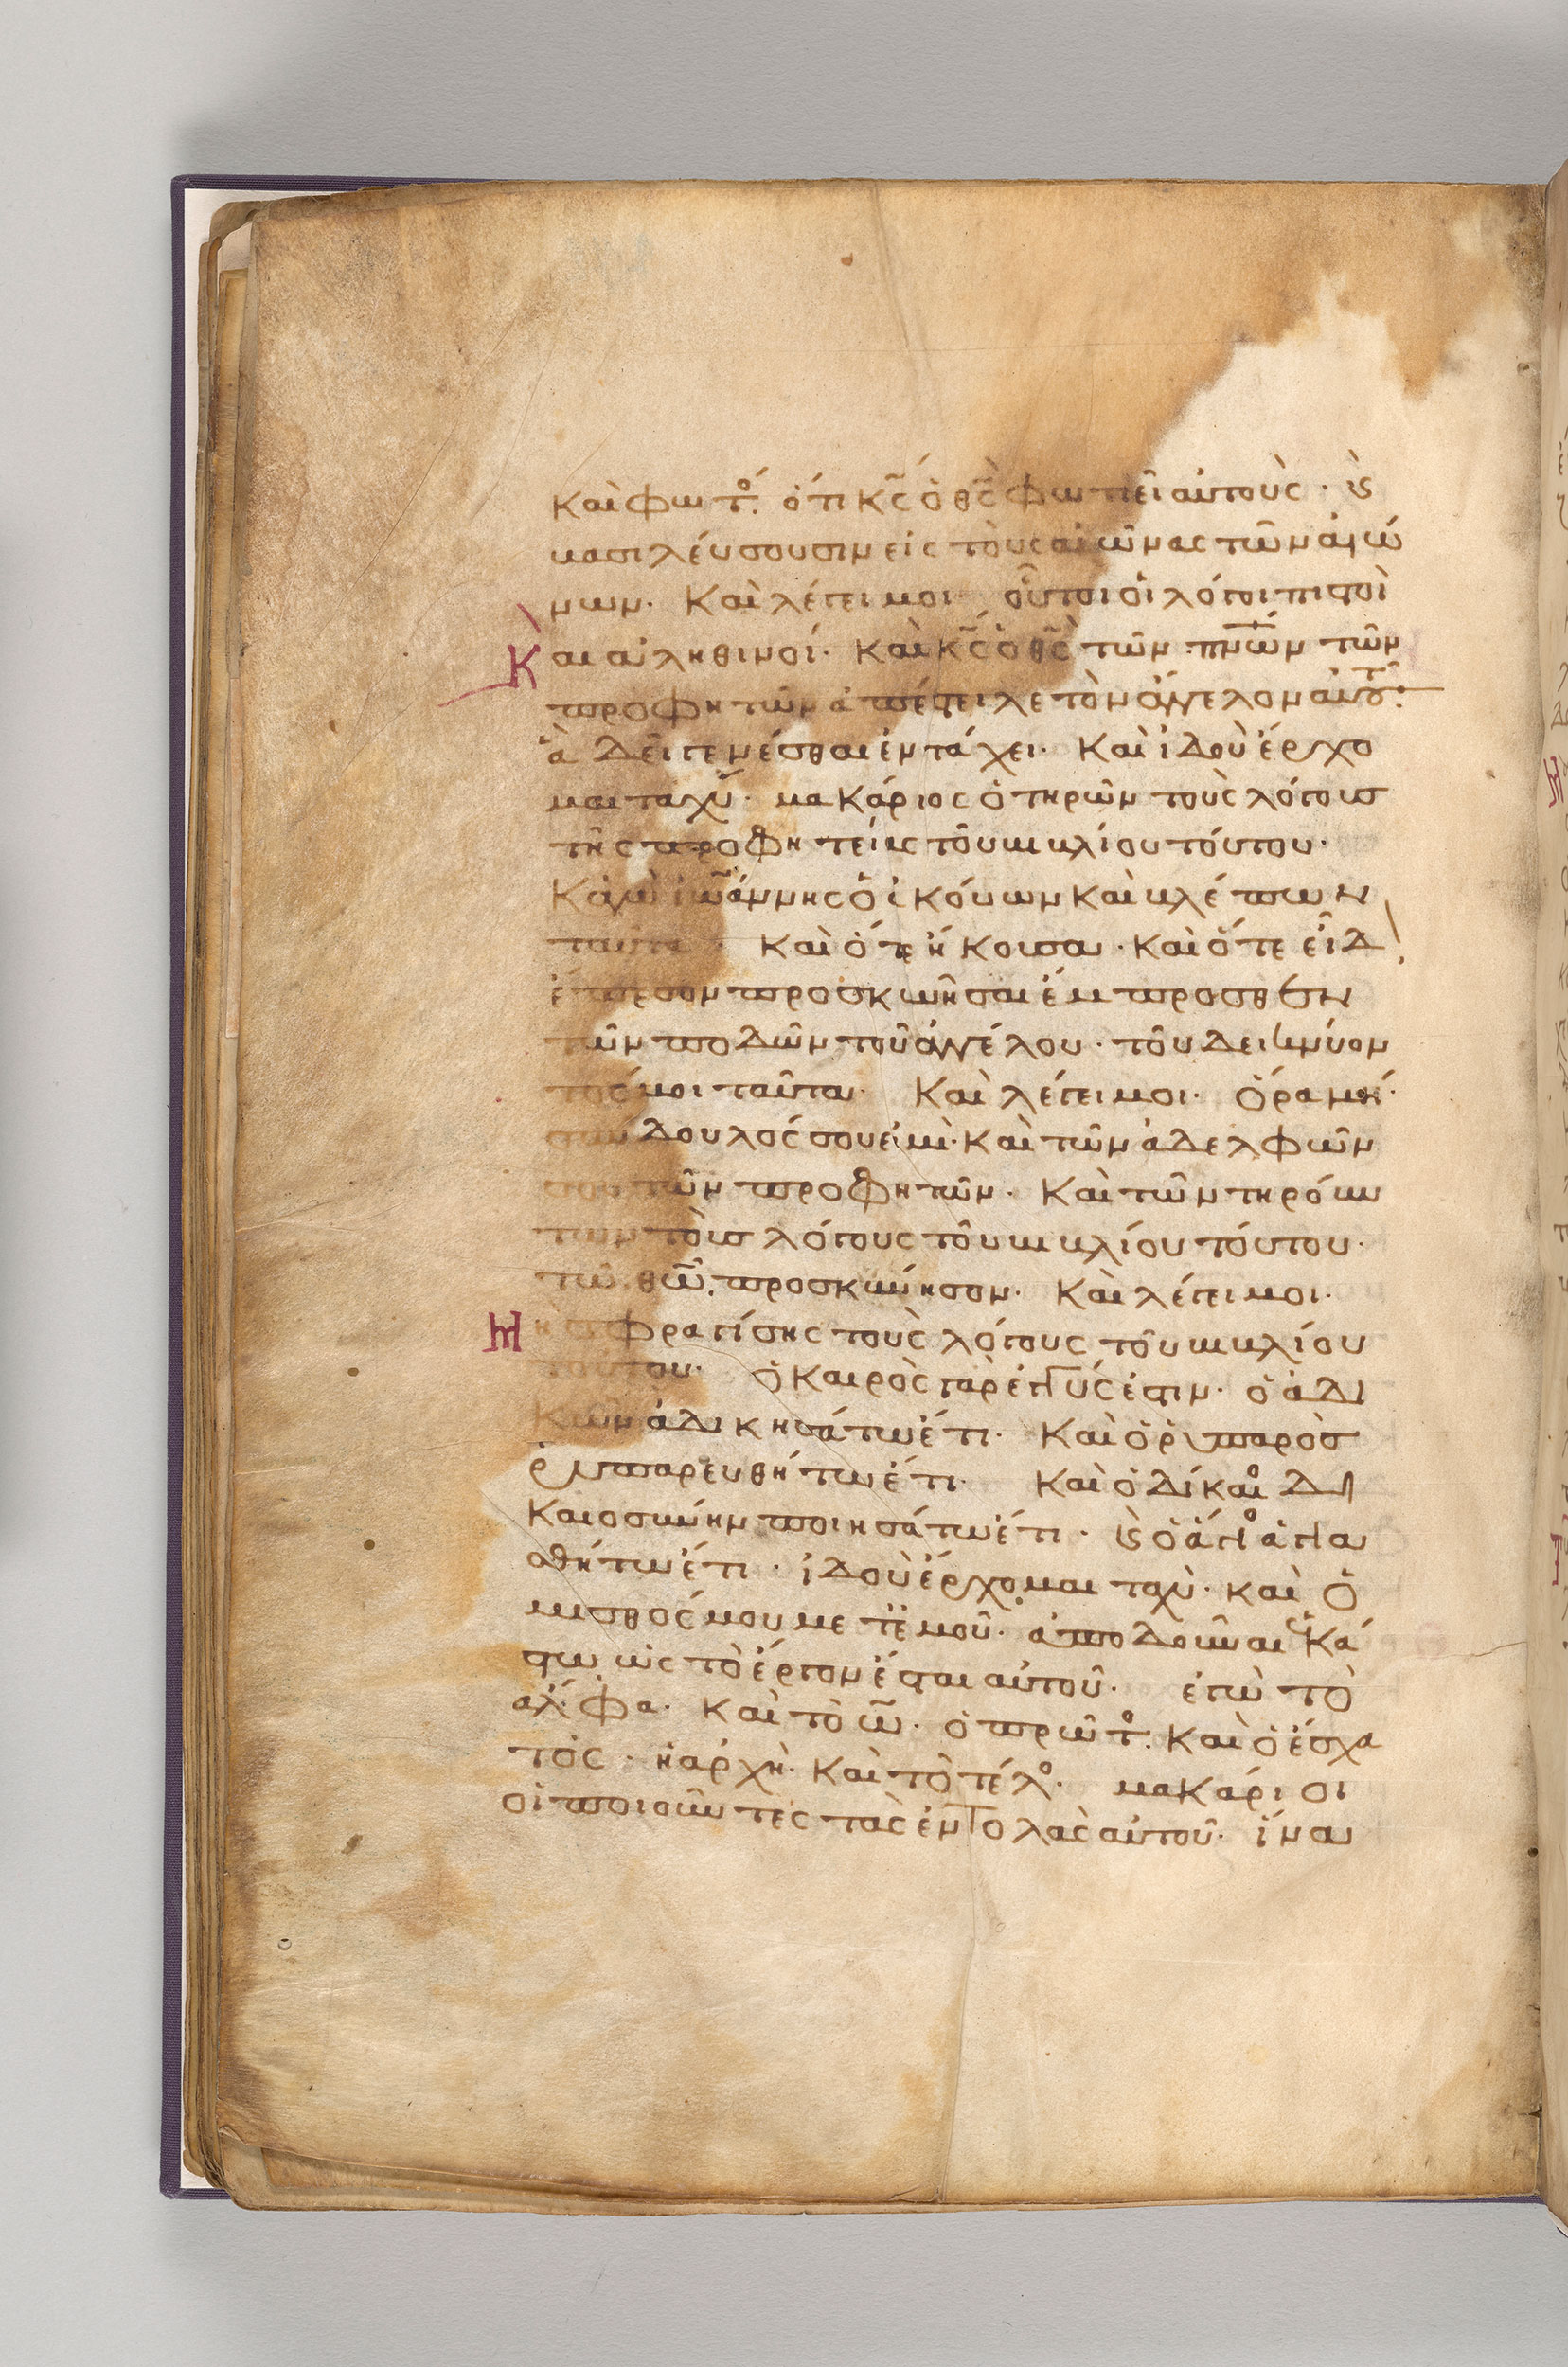 καὶ φωτό· ὅτι κ̅ς̅ ὁ θ̅ς̅ φωτιεῖ αὐτοὺς · ϗ
βασιλέυσουσιν εἰς τοὺς αἰῶνας τῶν αἰώ
νων· Καὶ λέγει μοι· οὗτοι οἱ λόγοι πιστοὶ
Και αληθινοί· Καὶ κ̅ς̅ ὁ θ̅ς̅ τῶν π̅ν̅ω̅ν τῶν
προφητῶν ἀπέστειλε τὸν ἄγγελον αὐτοῦ·
ἃ δεῖ γενέσθαι ἐν τάχει· Καὶ ἰδοὺ ἔρχο
μαι ταχῦ· μακάριος ὁ τηρῶν τοὺς λόγους
τῆς προφητείας τοῦ βιβλίου τούτου·
Κἀγὼ ἰωάννης ὁ ἀκούων Καὶ βλέπων
ταῦτα · Καὶ ὅτε ἤκουσα · Καὶ ὅτε εἶδ
ἔπεσον προσκυνῆσαι ἔμπροσθεν
τῶν ποδῶν τοῦ ἀγγέλου · τοῦ δεικνύον
τός μοι ταῦτα· Καὶ λέγει μοι· ὅρα μή·
σύνδουλός σου εἰμὶ· Καὶ τῶν ἀδελφῶν
σου τῶν προφητῶν· Καὶ τῶν τηρούν
των τοὺς λόγους τοῦ βιβλίου τούτου·
τῶ θ̅ῶ̅ προσκύνησον· Καὶ λέγει μοι·
Μὴ σφραγίσης τοὺς λόγους τοῦ βιβλίου
τούτου· ὁ Καιρὸς γὰρ ἐγγύς ἐστιν· ὁ ἀδι
Κῶν ἀδικησάτω ἔτι· Καὶ ὁ ῥυπαρὸς
ῥυπαρευθήτω ἔτι· Καὶ ὁ δίκαιο δι
Καιοσύνην ποιησάτω ἔτι · ϗ ὁ ἅγιο ἁγια
σθήτω ἔτι · ἰδοὺ ἔρχομαι ταχὺ· καὶ ὁ
μισθός μου μετ ἐμοῦ· ἀποδοῦναι ἑκά
στω ὡς τὸ ἔργον ἔσται αὐτοῦ· ἐγὼ τὸ
αλφα· Καὶ τὸ ω̅· ὁ πρῶτο· Καὶ ὁ ἔσχα
τός · ἡ αρχὴ· Καὶ τὸ τέλο· μακάριοι
οἱ ποιοῦντες τὰς ἐντολὰς αὐτοῦ· ἵνα